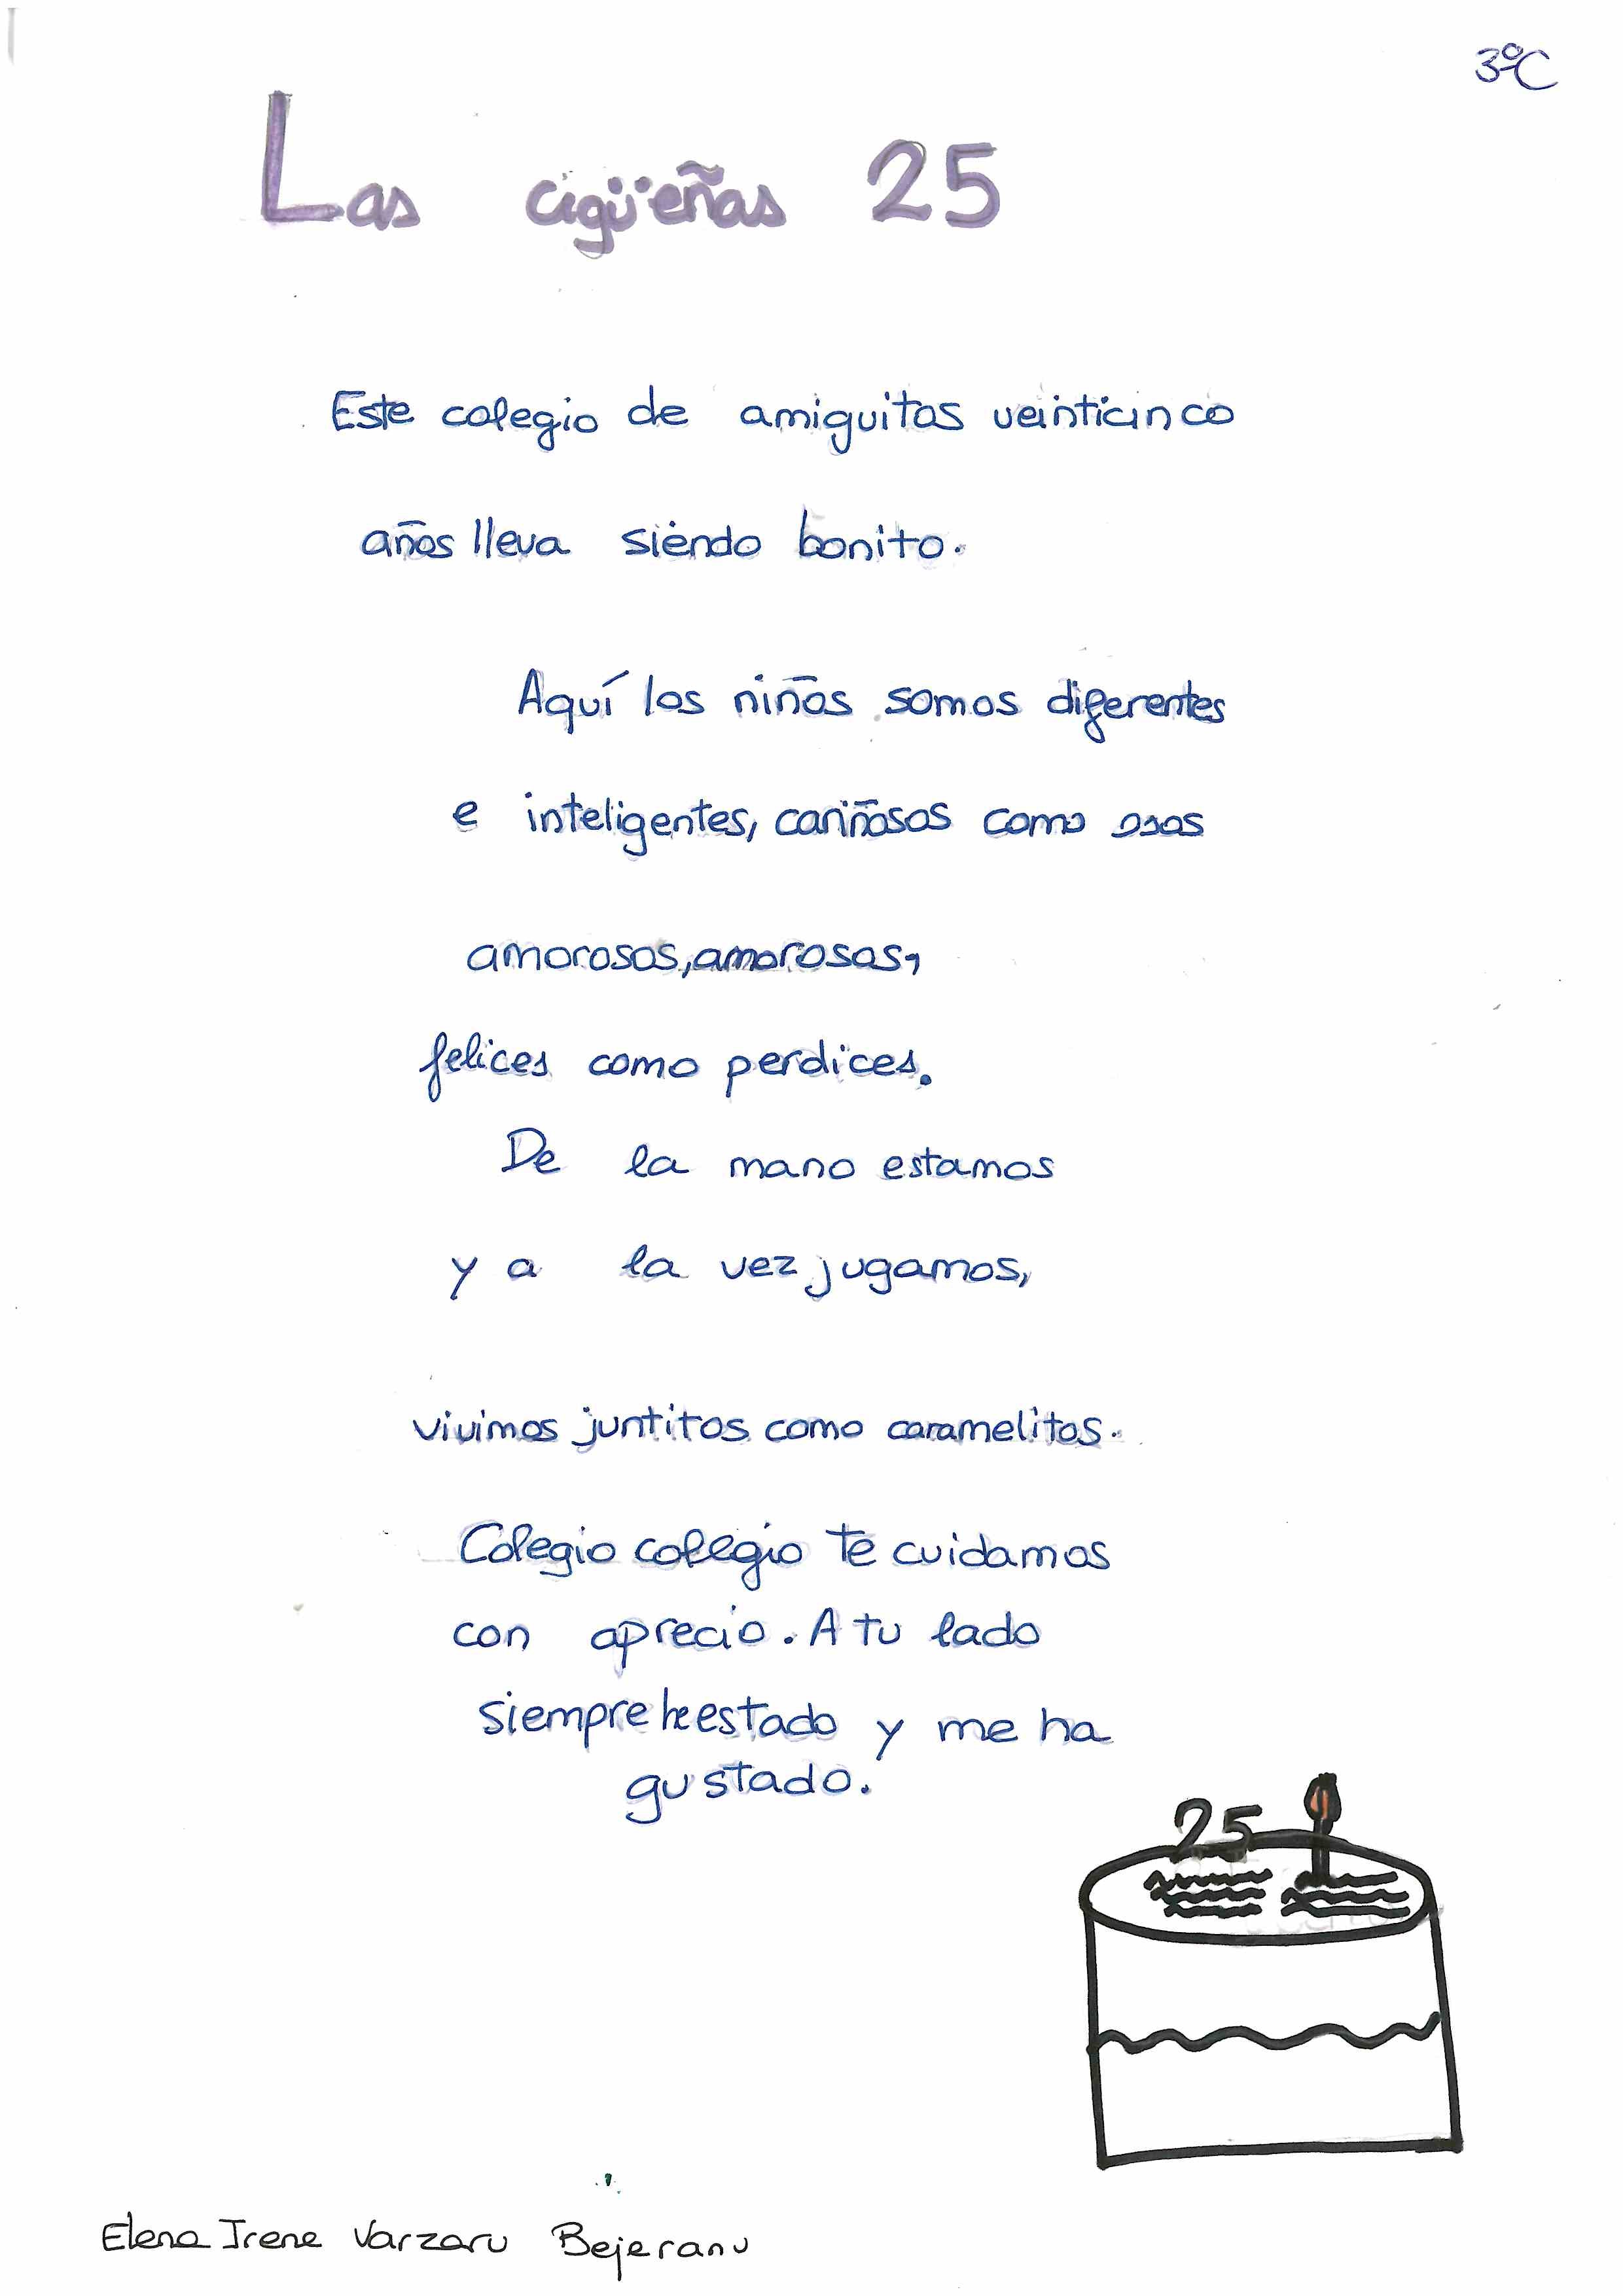 3ºC
Las cigüeñas 25
Este colegio de amiguitos veinticinco
años lleva siendo bonito.
Aquí los niños somos diferentes
e inteligentes, cariñosos como osos
amorosos, amorosos,
felices como perdices.
De la mano estamos
y a la vez jugamos,
vivimos juntitos como caramelitos.
Colegio colegio te cuidamos
con aprecio. A tu lado
siempre he estado y me ha
gustado.
25
Elena Irene Varzaru Bejeranu